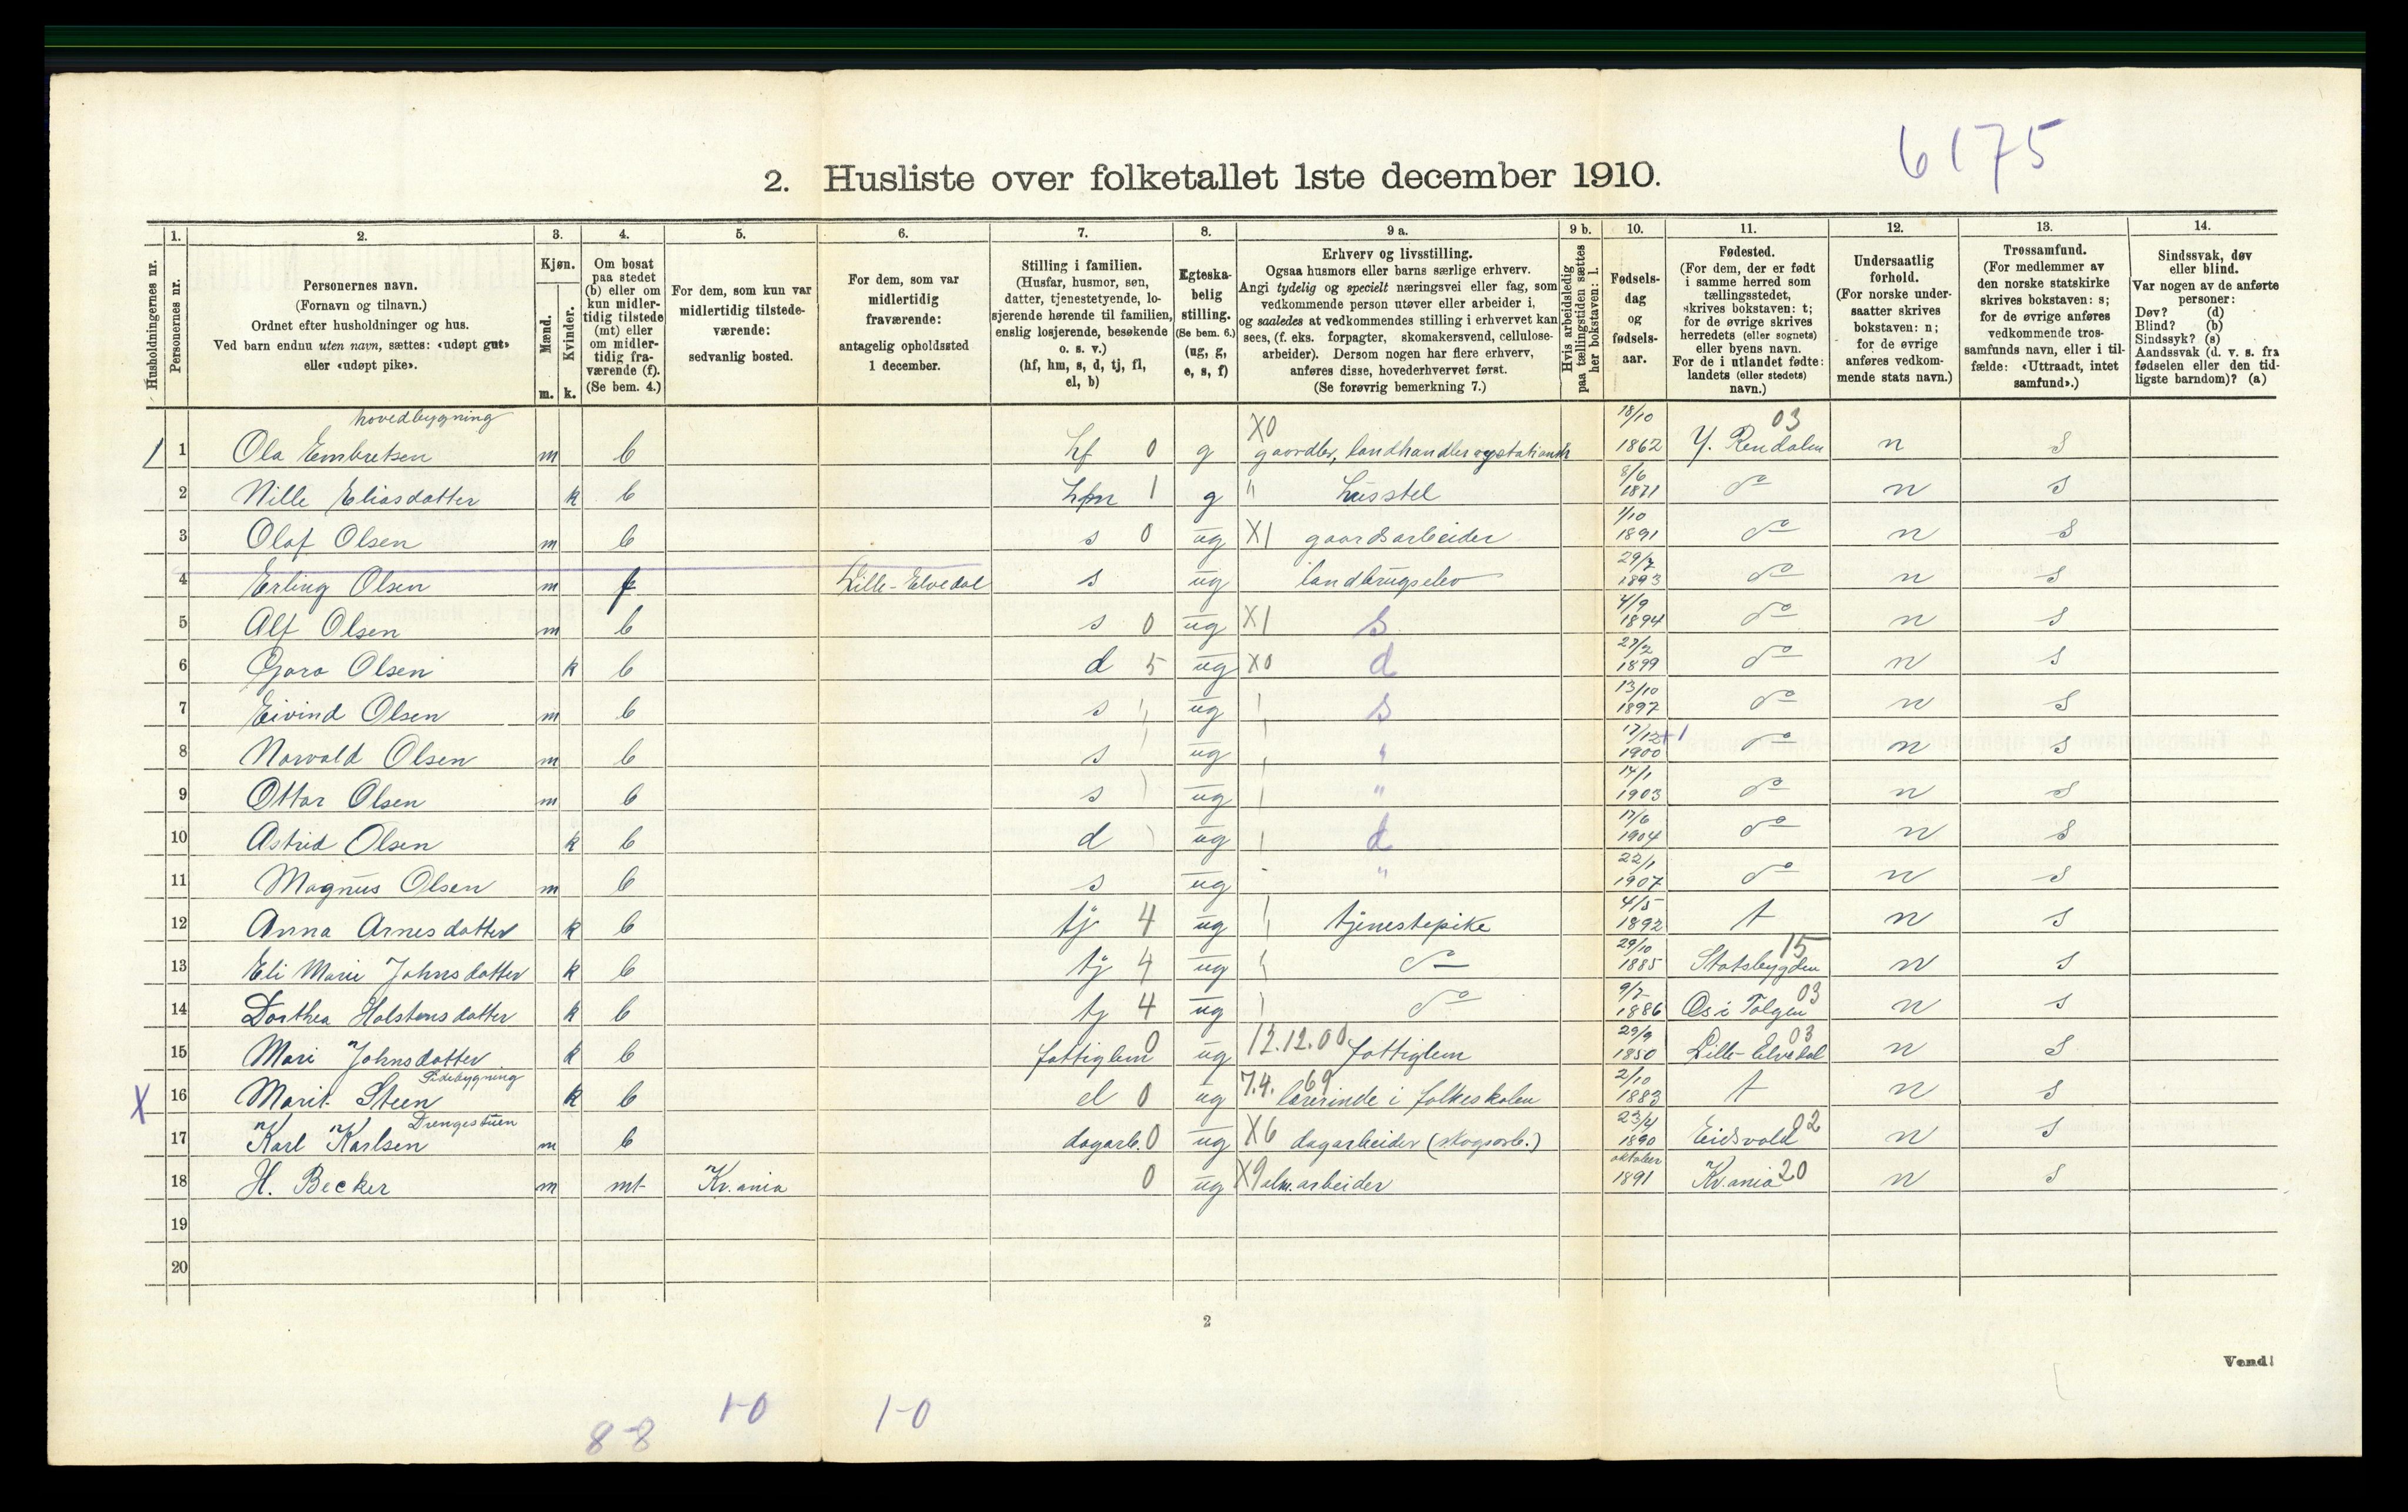 6175
2. Husliste over folketallet 1ste december 1910.
Husholdningernes nr.
1. Personernes nr.
2. Personernes navn.
(Fornavn og tilnavn.)
Ordnet efter husholdninger og hus.
Ved barn endnu uten navn, sættes: «udøpt gut»
eller «udøpt pike».
3. Kjøn.
Mænd. Kvinder.
m. k.
4. Om bosat
paa stedet
(b) eller om
kun midler-
tidig tilstede
(mt) eller
om midler-
tidig fra-
værende (f).
(Se bem. 4.)
5. For dem, som kun var
midlertidig tilstede-
værende:
sedvanlig bosted.
6. For dem, som var
midlertidig
fraværende:
antagelig opholdssted
1 december.
7. Stilling i familien.
(Husfar, husmor, søn,
datter, tjenestetyende, lo-
sjerende hørende til familien,
enslig losjerende, besøkende
o. s. v.)
(hf, hm, s, d, tj, fl,
el, b)
8. Egteska-
belig
stilling.
(Se bem. 6.)
(ug, g,
e, s, f)
9 a. Erhverv og livsstilling.
Ogsaa husmors eller barns særlige erhverv.
Angi tydelig og specielt næringsvei eller fag, som
vedkommende person utøver eller arbeider i,
og saaledes at vedkommendes stilling i erhvervet kan
sees, (f. eks. forpagter, skomakersvend, cellulose-
arbeider). Dersom nogen har flere erhverv,
anføres disse, hovederhvervet først.
(Se forøvrig bemerkning 7.)
9 b. Hvis arbeidsledig
paa tællingstiden sættes
her bokstaven: l.
10. Fødsels-
dag
og
fødsels-
aar.
11. Fødested.
(For dem, der er født
i samme herred som
tællingsstedet,
skrives bokstaven: t;
for de øvrige skrives
herredets (eller sognets)
eller byens navn.
For de i utlandet fødte:
landets (eller stedets)
navn.)
12. Undersaatlig
forhold.
(For norske under-
saatter skrives
bokstaven: n;
for de øvrige
anføres vedkom-
mende stats navn.)
13. Trossamfund.
(For medlemmer av
den norske statskirke
skrives bokstaven: s;
for de øvrige anføres
vedkommende tros-
samfunds navn, eller i til-
fælde: «Uttraadt, intet
samfund».)
14. Sindssvak, døv
eller blind.
Var nogen av de anførte
personer:
Døv? (d)
Blind? (b)
Sindssyk? (s)
Aandssvak (d. v. s. fra
fødselen eller den tid-
ligste barndom)? (a)
hovedbygning
1 1 Ola Embretsen m b hf 0 g X0 gaardbr, landhandler og 18/10 1862 Y. Rendalen 03 n s
2 Nille Eliasdatter k b hm 1 g " husstel 8/6 1871 do n s
3 Olaf Olsen m b s 0 ug X1 gaardsarbeider 1/10 1891 do n s
4 Erling Olsen m f Lille-Elvedal s ug landbrugselev 29/7 1893 do n s
5 Alf Olsen m b s 0 ug X1 s 4/9 1894 do n s
6 Gara Olsen k b d 5 ug X0 d 27/2 1899 do n s
7 Eivind Olsen m b s ug s 13/10 1897 do n s
8 Norvald Olsen m b s ug " 17/12 1900 +1 do n s
9 Ottar Olsen m b s ug " 14/1 1903 do n s
10 Astrid Olsen k b d ug d 17/6 1904 do n s
11 Magnus Olsen m b s ug " 22/1 1907 do n s
12 Anna Arnesdatter k b tj 4 ug tjenestepike 4/5 1892 t n s
13 Eli Marie Johnsdatter k b tj 4 ug do 29/10 1885 Statsbygden 15 n s
14 Dorthea Holstensdatter k b tj 4 ug do 9/7 1886 Os i Tolgen 03 n s
15 Mari Johnsdatter k b fattiglem 0 ug 12.12.00 fattiglem 29/9 1850 Lille-Elvedal 03 n s
Sidebygning
X 16 Marit Steen k b el 0 ug 7.4. 69 lærerinde i folkeskolen 2/10 1883 t n s
Drengestuen
17 Karl Karlsen m b dagarb. 0 ug X6 dagarbeider (skogsarb.) 23/4 1890 Eidsvold 02 n s
18 H. Becker m mt Kr.ania 0 ug X9 alm. arbeider oktober 1891 Kr.ania 20 n s
19
20
2
Vend!
8-8 1-0 1-0